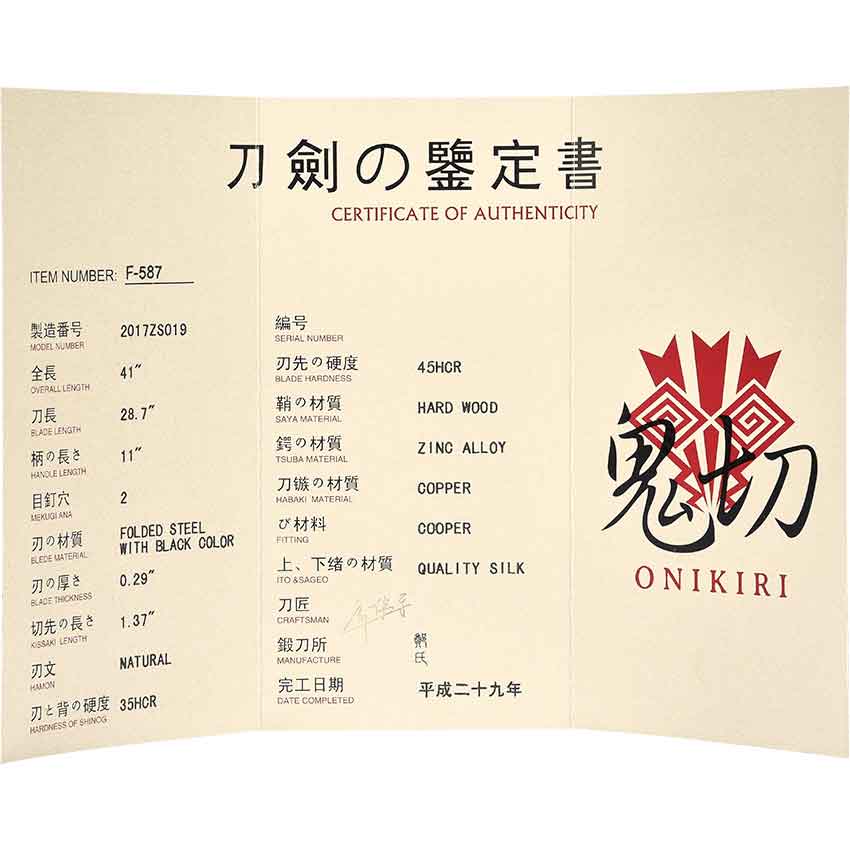 刀劍の鑒定書
CERTIFICATE OF AUTHENTICITY
ITEM NUMBER: F-587
製造番号 2017ZS019
MODEL NUMBER
全長 41"
OVERALL LENGTH
刀長 28.7"
BLADE LENGTH
柄の長さ 11"
HANDLE LENGTH
目釘穴 2
MEKUGI ANA
刃の材質 FOLDED STEEL WITH BLACK COLOR
BLEDE MATERIAL
刃の厚さ 0.29"
BLADE THICKNESS
切先の長さ 1.37"
KISSAKI LENGTH
刃文 NATURAL
HAMON
刃と背の硬度 35HCR
HARDNESS OF SHINOG
編号
SERIAL NUMBER
刃先の硬度 45HCR
BLADE HARDNESS
鞘の材質 HARD WOOD
SAYA MATERIAL
鍔の材質 ZINC ALLOY
TSUBA MATERIAL
刀镞の材質 COPPER
HABAKI MATERIAL
び材料 COOPER
FITTING
上、下绪の材質 QUALITY SILK
ITO &SAGEO
刀匠
CRAFTSMAN
鍛刀所
MANUFACTURE
完工日期 平成二十九年
DATE COMPLETED
鬼切
ONIKIRI